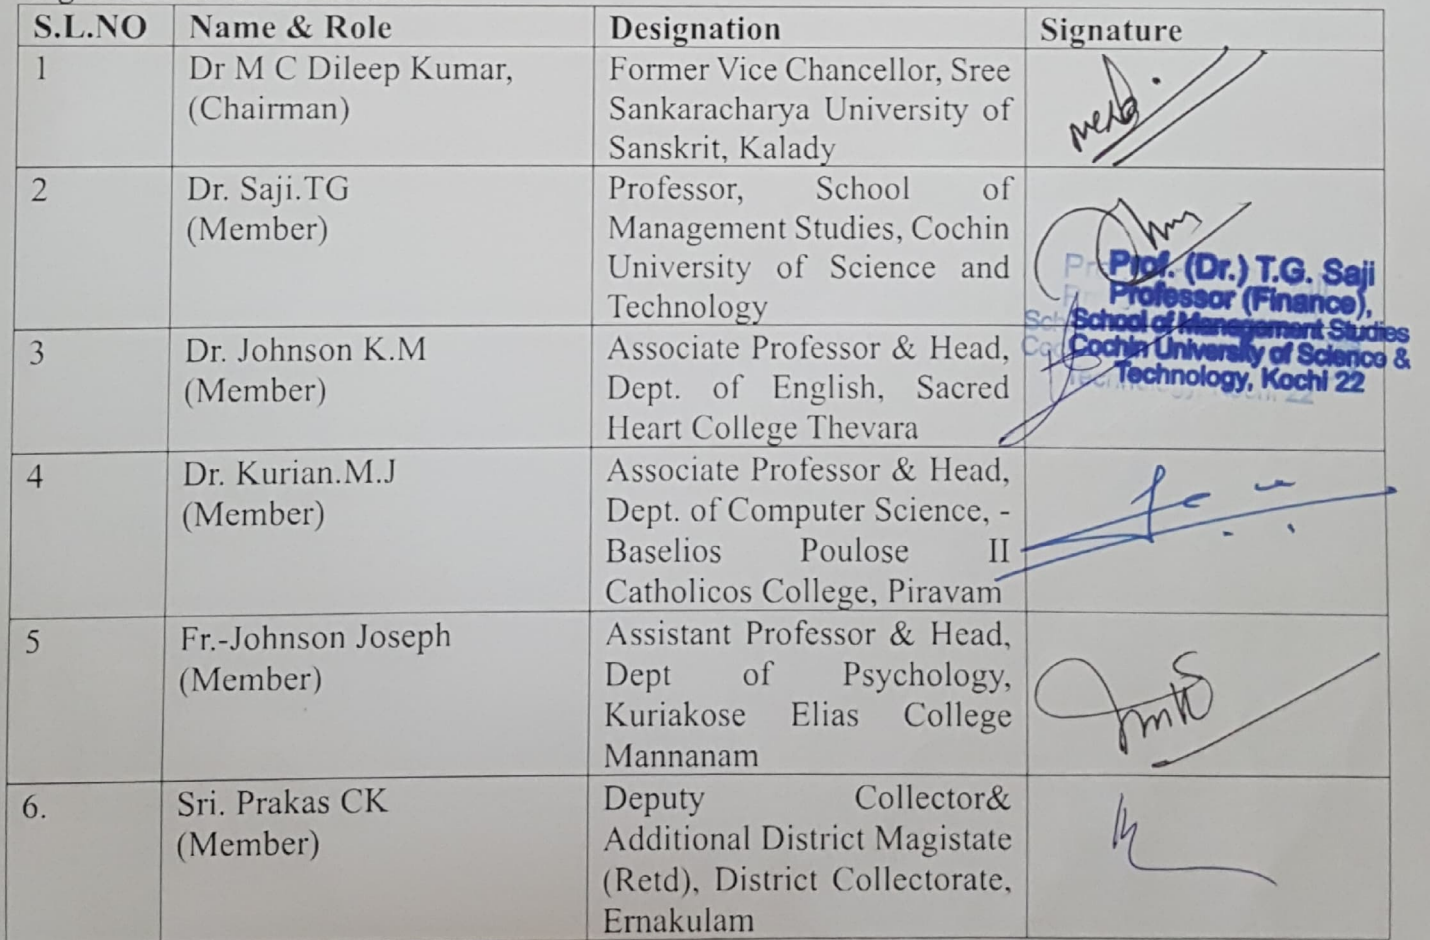 S.L.NO Name & Role Designation Signature
1 Dr M C Dileep Kumar, Former Vice Chancellor, Sree
(Chairman) Sankaracharya University of
Sanskrit, Kalady
2 Dr. Saji.TG Professor, School of
(Member) Management Studies, Cochin
University of Science and
Technology
Prof. (Dr.) T.G. Saji
Professor (Finance),
School of Management Studies
Cochin University of Science &
Technology, Kochi 22
3 Dr. Johnson K.M Associate Professor & Head,
(Member) Dept. of English, Sacred
Heart College Thevara
4 Dr. Kurian.M.J Associate Professor & Head,
(Member) Dept. of Computer Science, -
Baselios Poulose II
Catholicos College, Piravam
5 Fr.-Johnson Joseph Assistant Professor & Head,
(Member) Dept of Psychology,
Kuriakose Elias College
Mannanam
6. Sri. Prakas CK Deputy Collector&
(Member) Additional District Magistate
(Retd), District Collectorate,
Ernakulam